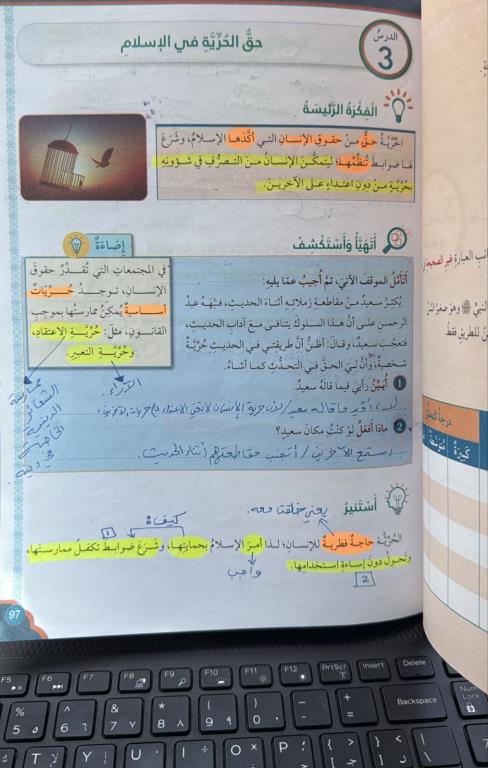 الدرسُ
3
حقُّ الحُرِّيَّةِ في الإسلامِ
الْفِكْرَةُ الرَّئيسَةُ
الحُرِّيَّةُ حقٌّ منْ حقوقِ الإنسانِ التي أكَّدَها الإسلامُ، وشَرَعَ
لها ضوابطَ تُنظِّمُها؛ ليتمكَّنَ الإنسانُ منَ التصرُّفِ في شؤونِهِ
بحُرِّيَّةٍ منْ دونِ اعتداءٍ على الآخرينَ.
أَتَهَيَّأُ وَأَسْتَكْشِفُ
أَتأمَّلُ الموقفَ الآتيَ، ثمَّ أُجيبُ عمّا يليهِ:
يُكثِرُ سعيدٌ منْ مقاطعةِ زملائِهِ أثناءَ الحديثِ، فنبَّهَهُ عبدُ
الرحمنِ على أنَّ هذا السلوكَ يتنافى معَ آدابِ الحديثِ،
فتعجَّبَ سعيدٌ، وقالَ: أظنُّ أنَّ طريقتي في الحديثِ حُرِّيَّةٌ
شخصيةٌ، وأنَّ ليَ الحقَّ في التحدُّثِ كما أشاءُ.
1 أُبيِّنُ رأيي فيما قالَهُ سعيدٌ.
لا أؤيد ما قاله سعيد / لأن حرية الإنسان لا تعني الاعتداء على حريات الآخرين.
2 ماذا أفعلُ لوْ كنتُ مكانَ سعيدٍ؟
استمع للآخرين / أتجنب مقاطعتهم أثناء الحديث.
إضاءَةٌ
في المجتمعاتِ التي تُقدِّرُ حقوقَ
الإنسانِ، توجدُ حُرِّيّاتٌ
أساسيةٌ يُمكنُ ممارستُها بموجبِ
القانونِ، مثلُ: حُرِّيَّةِ الاعتقادِ،
وحُرِّيَّةِ التعبيرِ.
الآراء.
ممارسة
الشعائر
الدينية
الخاصة
أَسْتَنيرُ
يعني خلقت معه.
كيف؟
1
الحُرِّيَّةُ حاجةٌ فطريةٌ للإنسانِ؛ لذا أمرَ الإسلامُ بحمايتِها، وشَرَعَ ضوابطَ تكفلُ ممارستَها،
وتَحولُ دونَ إساءةِ استخدامِها.
واجب
2
97
غيرِ الصحيحةِ
للطريقِ فقطْ.
درجةُ
كبيرةٌ
متوسطةٌ
F5
F6
F7
F8
F9
F10
F11
F12
PrtScr
Insert
Delete
Backspace
Num
Lock
% 5 ٥
^ 6 ٦
& 7 ٧
* 8 ٨
( 9 ٩
) 0 ٠
_ -
+ =
T
Y
U
I
O
P